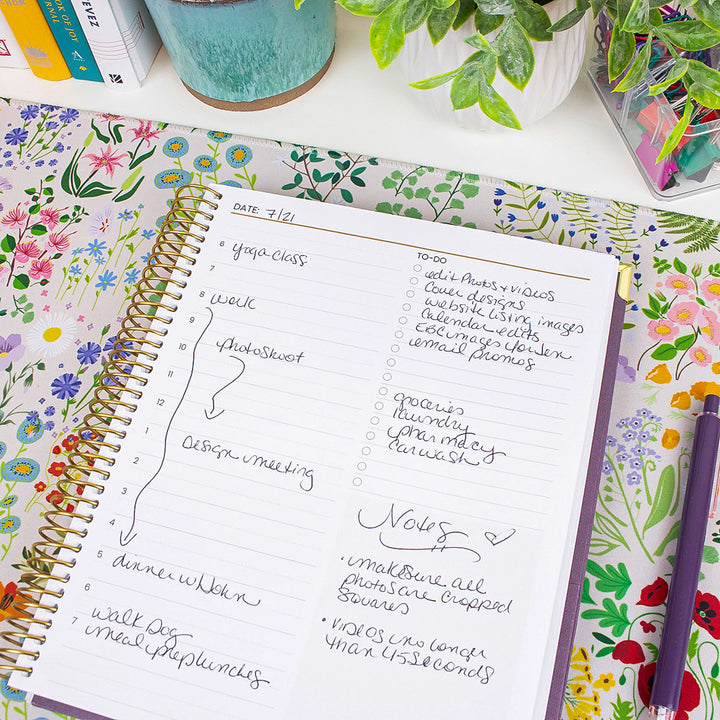 BOOK OF JOY
EVEZ
DATE: 7/21
6 yoga class
7
8 work
9
10 photoshoot
11
12
1 Design meeting
2
3
4
5 dinner w John
6
7 walk Dog
meal prep lunches
TO-DO
edit Photos + Videos
Cover designs
website listing images
Calendar edits
EBC images for Jen
email promos
groceries
laundry
pharmacy
car wash
Notes
• make sure all
photos are cropped
squares
• videos no longer
than 45 seconds